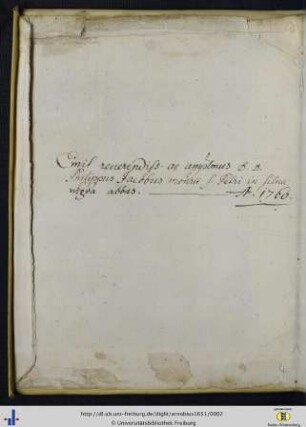 Emit reverendiss. ac amplmus D. D.
Philippus Jacobus monrii S. Petri in silva
nigra abbas. A. 1760.
http://dl.ub.uni-freiburg.de/diglit/arnobius1651/0002
© Universitätsbibliothek Freiburg